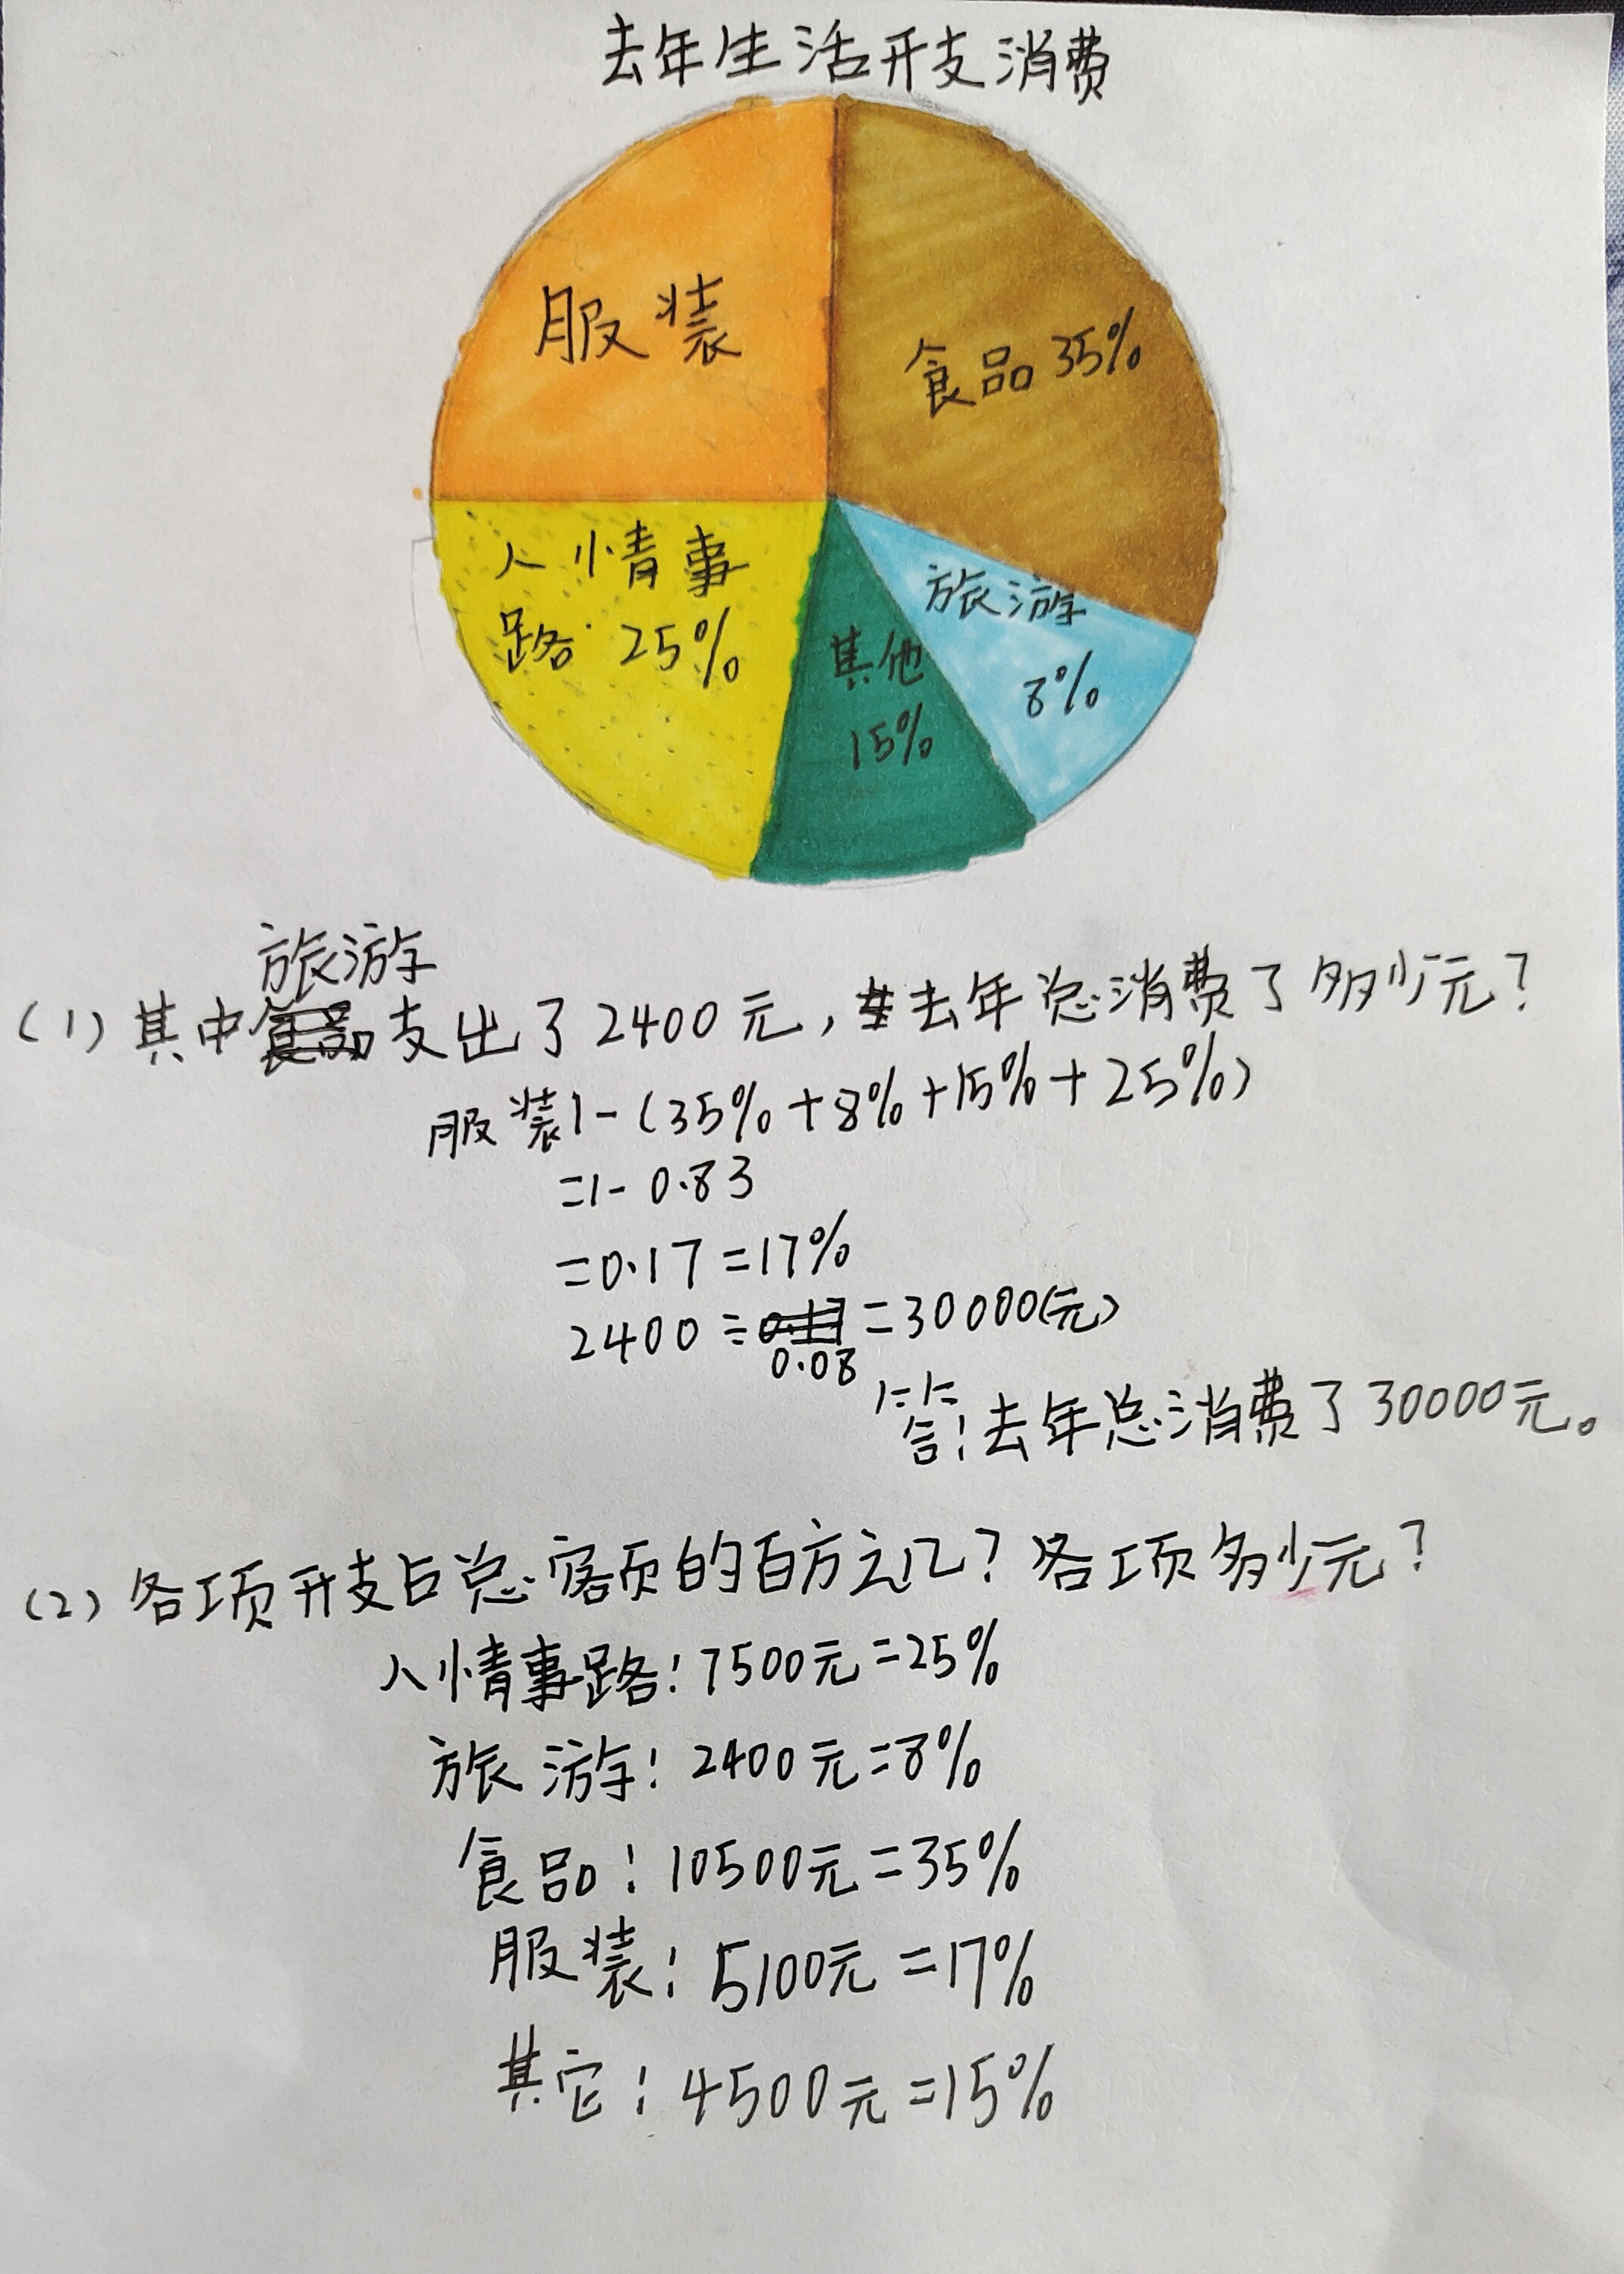 去年生活开支消费
服装
食品 35%
人情事
路 25%
其他
15%
旅游
8%
旅游
(1) 其中支出了2400元,去年总消费了多少元?
服装1-(35%+8%+15%+25%)
=1-0.83
=0.17=17%
2400÷0.08=30000(元)
答:去年总消费了30000元。
(2) 各项开支占总额的百方之几?各项多少元?
人情事路:7500元=25%
旅游:2400元=8%
食品:10500元=35%
服装:5100元=17%
其它:4500元=15%